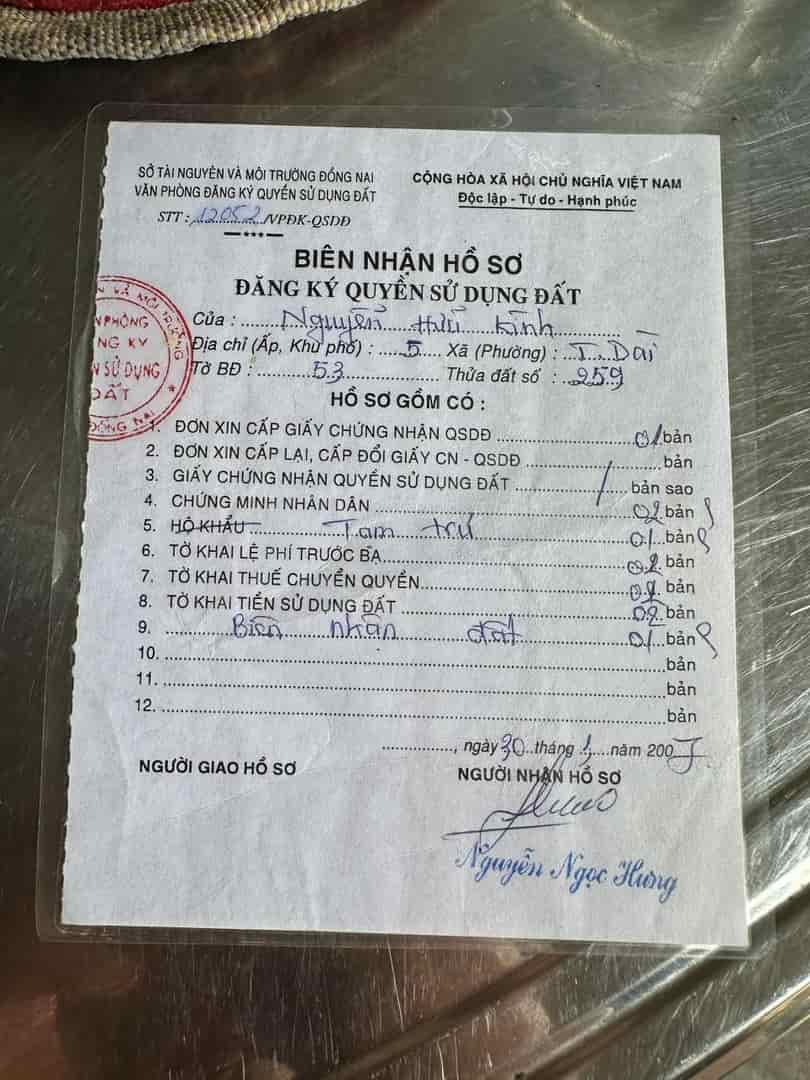 SỞ TÀI NGUYÊN VÀ MÔI TRƯỜNG ĐỒNG NAI
VĂN PHÒNG ĐĂNG KÝ QUYỀN SỬ DỤNG ĐẤT
STT : 12052 /VPĐK-QSDĐ
CỘNG HÒA XÃ HỘI CHỦ NGHĨA VIỆT NAM
Độc lập - Tự do - Hạnh phúc
BIÊN NHẬN HỒ SƠ
ĐĂNG KÝ QUYỀN SỬ DỤNG ĐẤT
VÀ MÔI TRƯỜNG
PHÒNG
NG KÝ
N SỬ DỤNG
ĐẤT
ĐỒNG NAI
Của : Nguyễn Hữu Kính
Địa chỉ (Ấp, Khu phố) : 5 Xã (Phường) : T. Dài
Tờ BĐ : 53 Thửa đất số : 259
HỒ SƠ GỒM CÓ :
1. ĐƠN XIN CẤP GIẤY CHỨNG NHẬN QSDĐ 01 bản
2. ĐƠN XIN CẤP LẠI, CẤP ĐỔI GIẤY CN - QSDĐ bản
3. GIẤY CHỨNG NHẬN QUYỀN SỬ DỤNG ĐẤT / bản sao
4. CHỨNG MINH NHÂN DÂN 02 bản
5. HỘ KHẨU Tam trú 01 bản
6. TỜ KHAI LỆ PHÍ TRƯỚC BẠ 02 bản
7. TỜ KHAI THUẾ CHUYỂN QUYỀN 02 bản
8. TỜ KHAI TIỀN SỬ DỤNG ĐẤT 02 bản
9. Biên nhận đất 01 bản
10. bản
11. bản
12. bản
, ngày 30 tháng 1 năm 200
NGƯỜI GIAO HỒ SƠ
NGƯỜI NHẬN HỒ SƠ
Nguyễn Ngọc Hưng